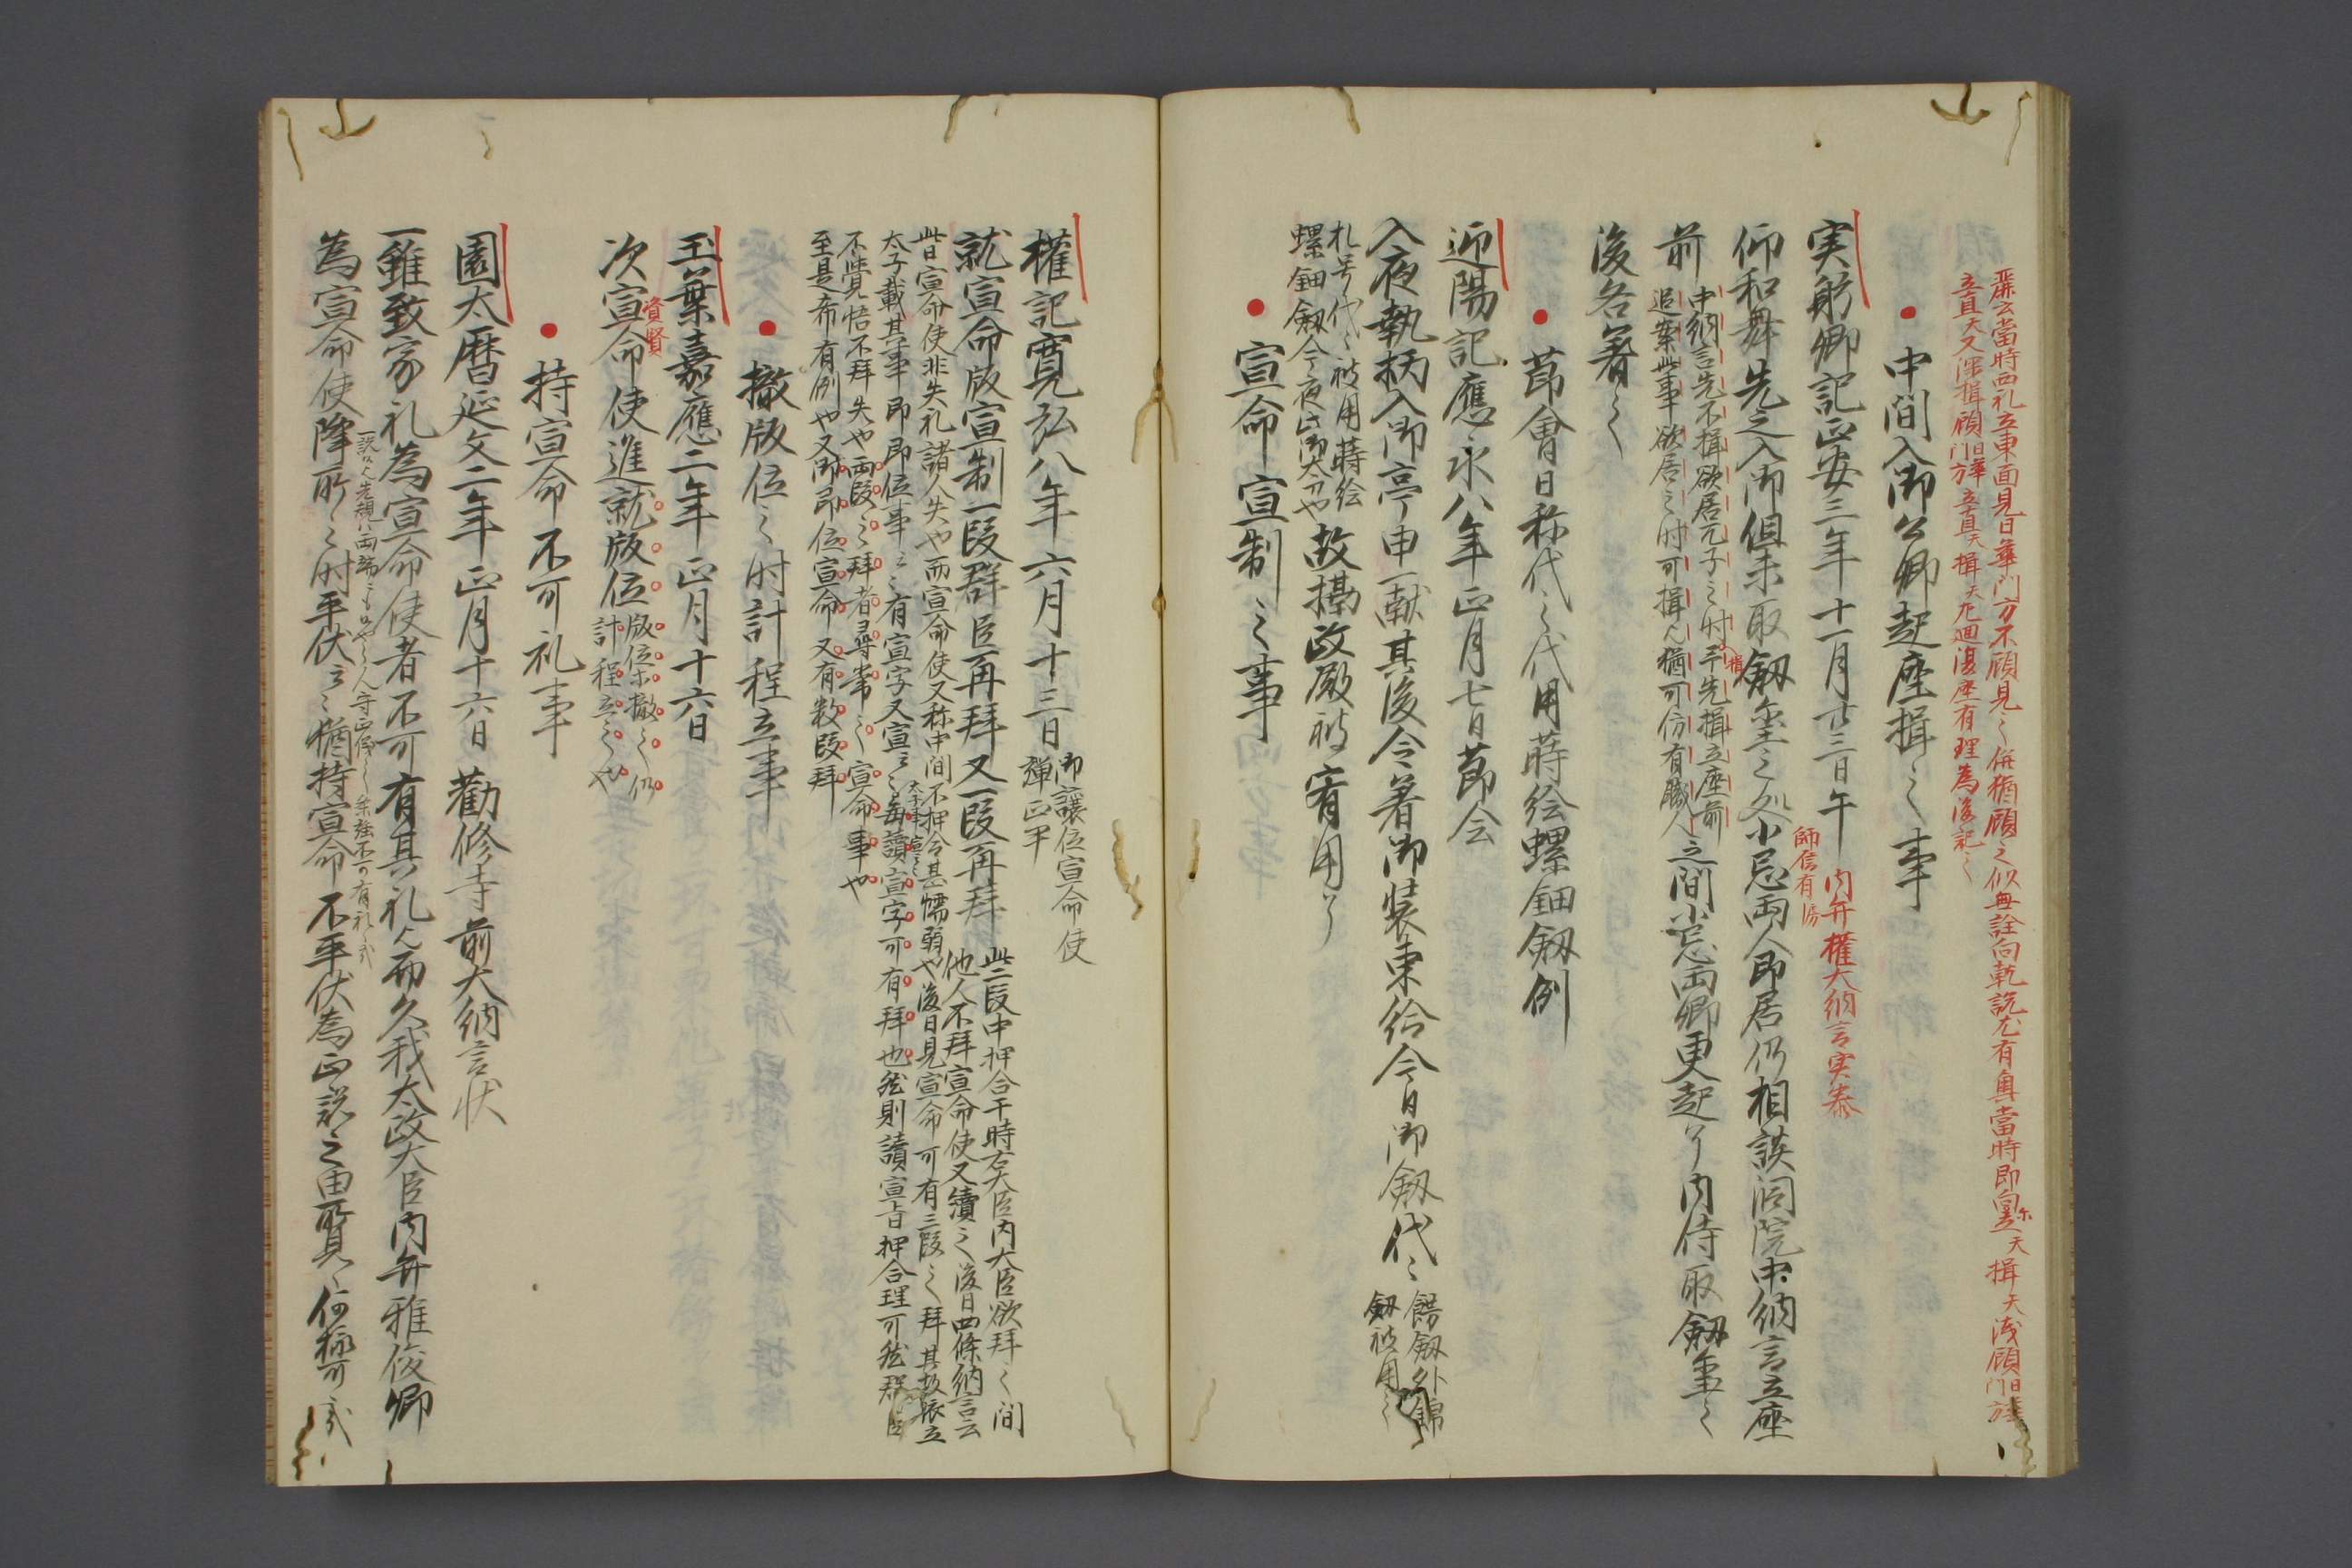 麗云當時西礼立東面見日華門方不顧見之併猶顧之似無詮向乾説尤有興當時即向異天揖天浅顧日華門方
立直天又深揖顧日華門方立直天揖天左廻復座有理為後記之
中間入御公卿起座揖之事
実躬卿記正安三年十一月廿三日午内弁権大納言実泰
仰和舞先之入御但未取釼璽之処小忌両人師信有房即居仍相談洞院中納言立座
前中納言先不揖欲居兀子之時予先揖立座前
追案此事欲居之時可揖欤猶可仿有職人之間小忌両卿更起了内侍取釼璽之
後各著之
節會日称代之代用蒔絵螺鈿釼例
迎陽記應永八年正月七日節会
入夜執柄入御亭申一献其後令著御装束給今日御釼代々餝釼外錦
釼被用之
札号代々被用蒔絵
螺鈿釼今夜此御太刀也故攝政殿被宥用了
宣命宣制之事
權記寛弘八年六月十三日御讓位宣命使
弾正尹
就宣命版宣制一段群臣再拜又一段再拜此二段中押合于時右大臣内大臣欲拜之間
他人不拜宣命使又續之後日四條納言云
此日宣命使非失礼諸人失也而宣命使又称中間不押合甚懦弱也後日見宣命可有三段之拜其故依立
太子載其事即即位事云々有宣字又宣云々太子事宣云々每讀宣字可有拜也然則讀宣旨押合理可然群臣
不覺悟不拜失也両段之拜者尋常之宣命事也
至是希有例也又御即位宣命又有数段拜
撤版位之時計程立事
玉葉嘉應二年正月十六日
次宣命使資賢進就版位版位不撤之仍
計程立之也
持宣命不可礼事
園太暦延文二年正月十六日勸修寺前大納言状
一雖致家礼為宣命使者不可有其礼欤而久我太政大臣内弁雅俊卿
為宣命使降所之時平伏云々猶持宣命不平伏為正説之由所見候何様可哉